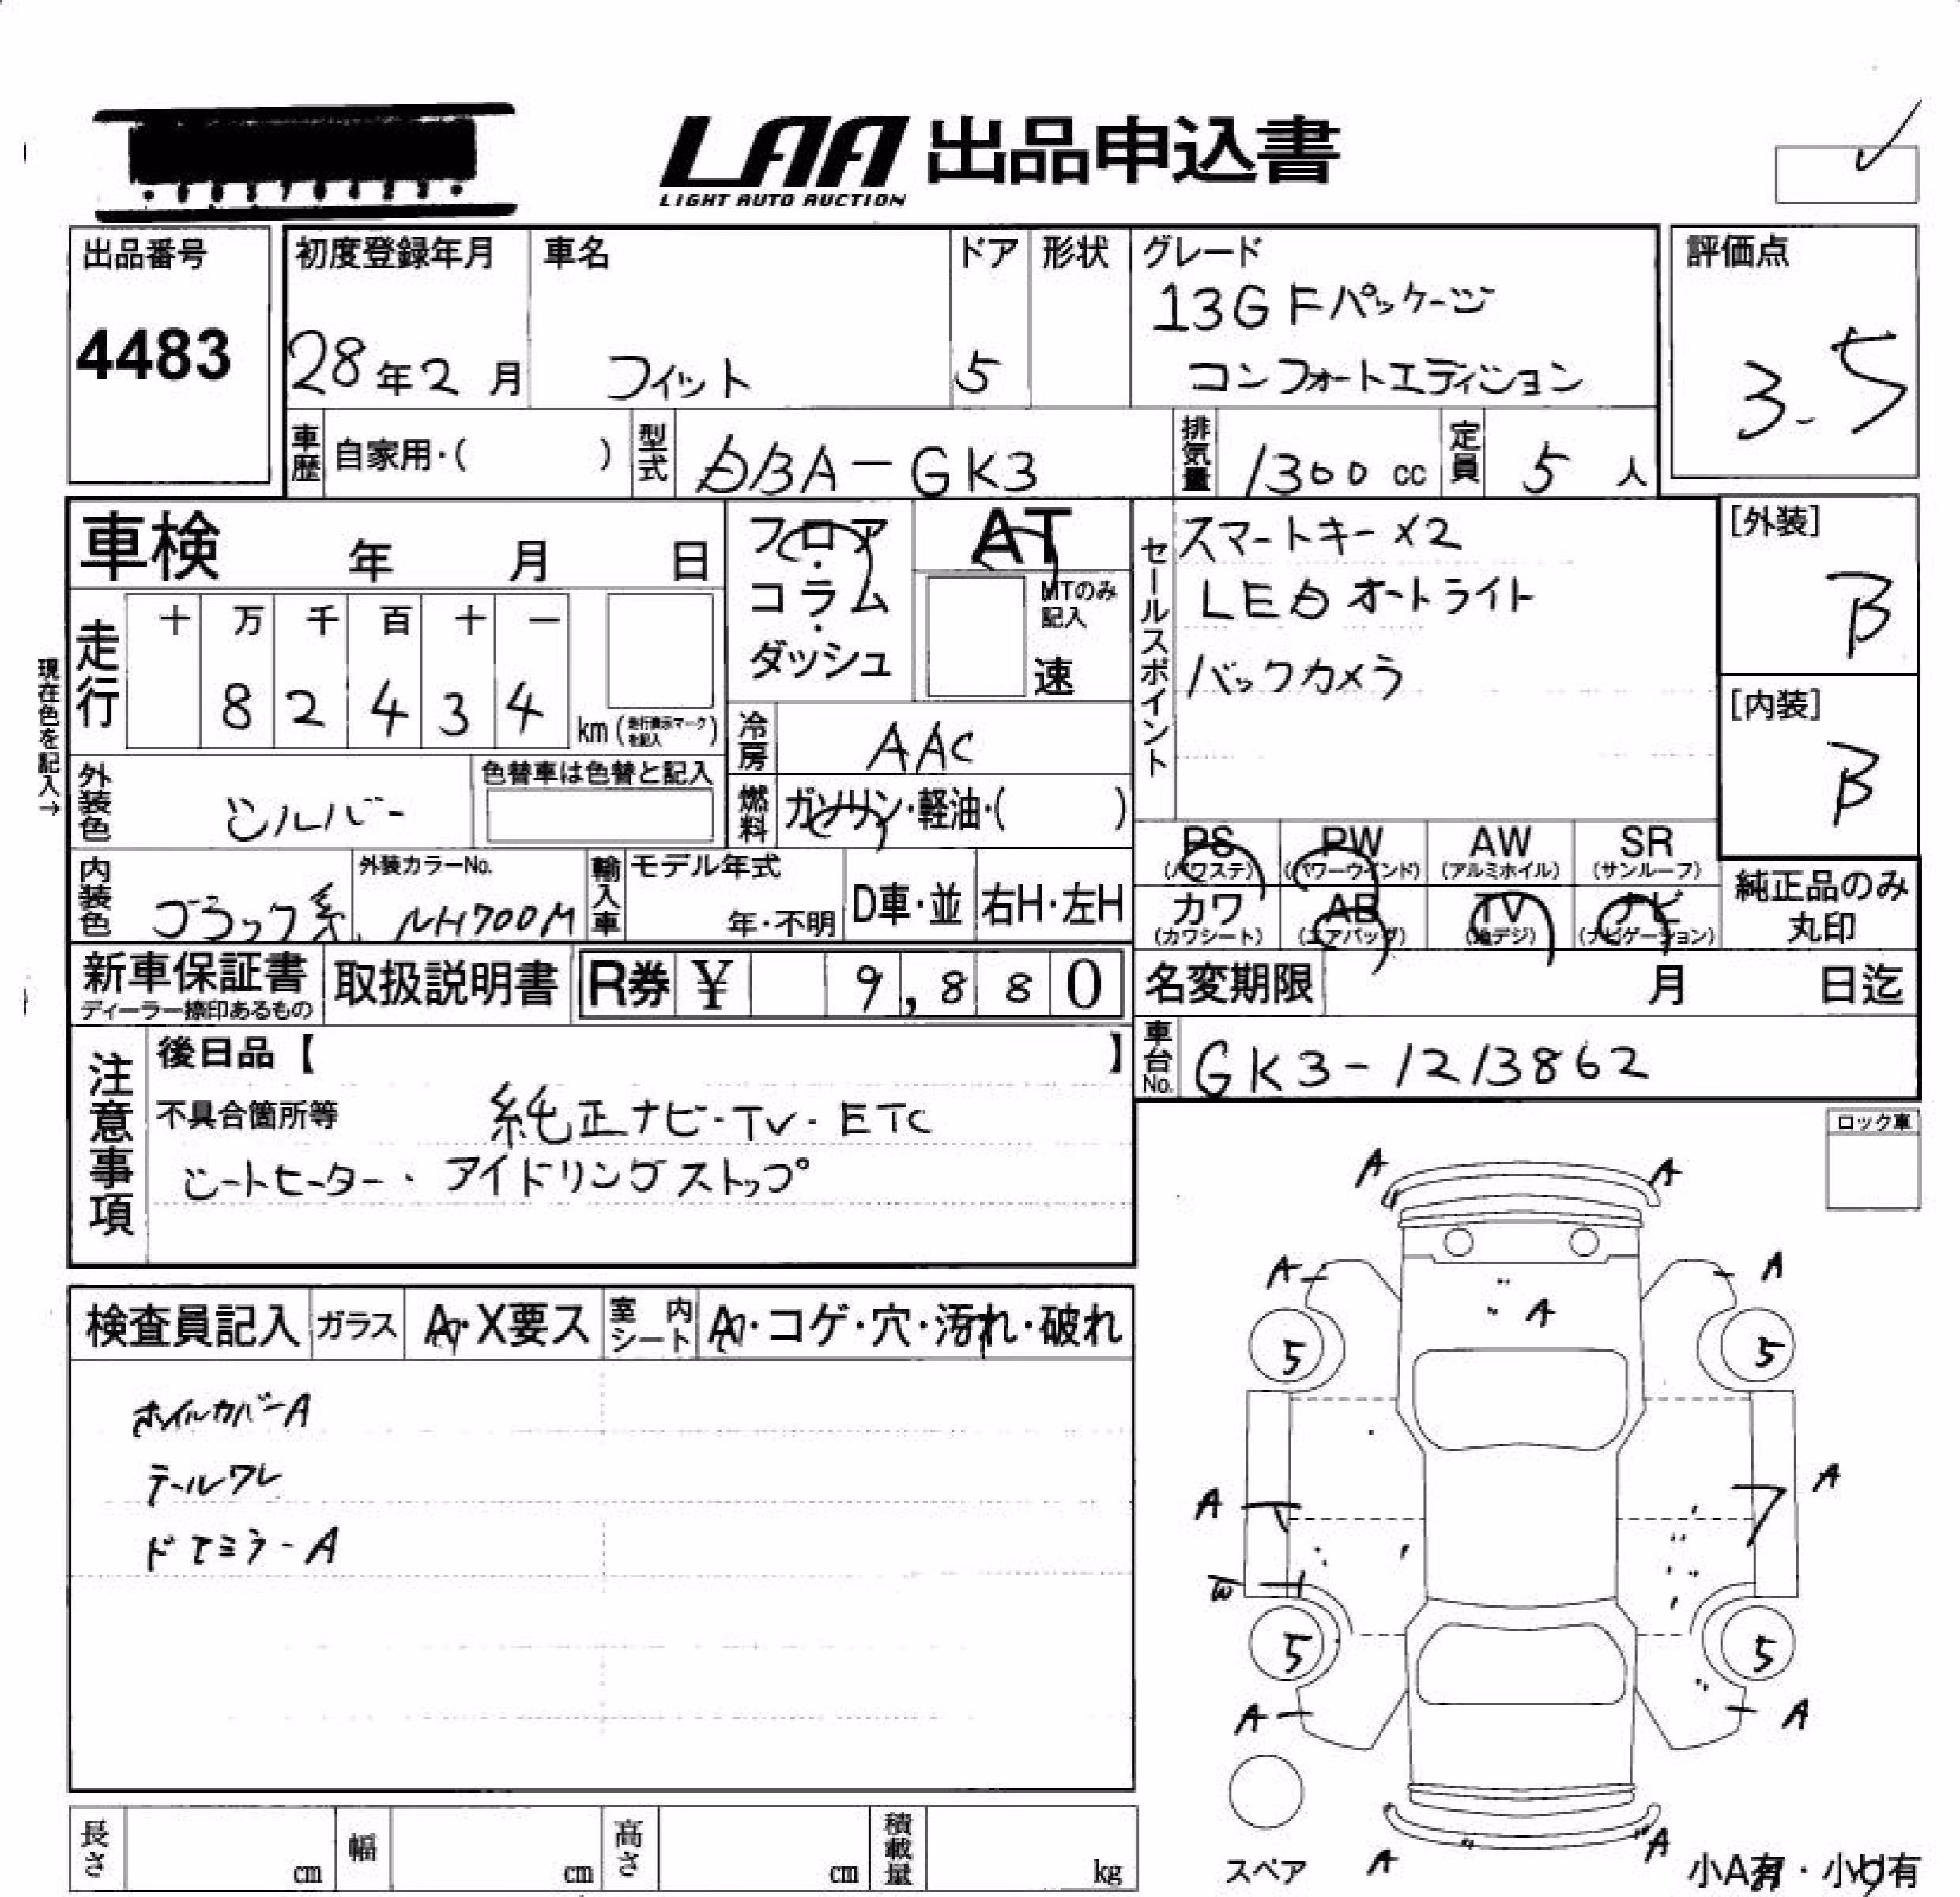 LAA 出品申込書
LIGHT AUTO AUCTION
出品番号
4483
初度登録年月
28年2月
車名
フィット
ドア
5
形状
グレード
13G Fパッケージ
コンフォートエディション
評価点
3.5
車歴
自家用・( )
型式
DBA-GK3
排気量
1300 cc
定員
5 人
車検 年 月 日
フロア・
コラム・
ダッシュ
AT
MTのみ
記入
速
セールスポイント
スマートキー×2
LEDオートライト
バックカメラ
[外装]
B
[内装]
B
現在色を記入→
走行
十 万 千 百 十 一
8 2 4 3 4
km (走行表示マークを記入)
冷房
AAC
外装色
シルバー
色替車は色替と記入
燃料
ガソリン・軽油・( )
内装色
ブラック系
外装カラーNo.
NH700M
輸入車
モデル年式
年・不明
D車・並
右H・左H
PS
(パワステ)
PW
(パワーウインド)
AW
(アルミホイル)
SR
(サンルーフ)
カワ
(カワシート)
AB
(エアバッグ)
TV
(地デジ)
ナビ
(ナビゲーション)
純正品のみ
丸印
新車保証書
ディーラー捺印あるもの
取扱説明書
R券 ¥ 9,880
名変期限 月 日迄
車台No.
GK3-1213862
注意事項
後日品【 】
不具合箇所等
純正ナビ・TV・ETC
シートヒーター・アイドリングストップ
ロック車
検査員記入
ガラス
A・X要ス
室内
シート
A・コゲ・穴・汚れ・破れ
ホイルカバーA
テールワレ
ドアミラーA
A A
A A
A
5 5
A A
W
5 5
A A
A A
スペア
小A有・小U有
長さ cm
幅 cm
高さ cm
積載量 kg